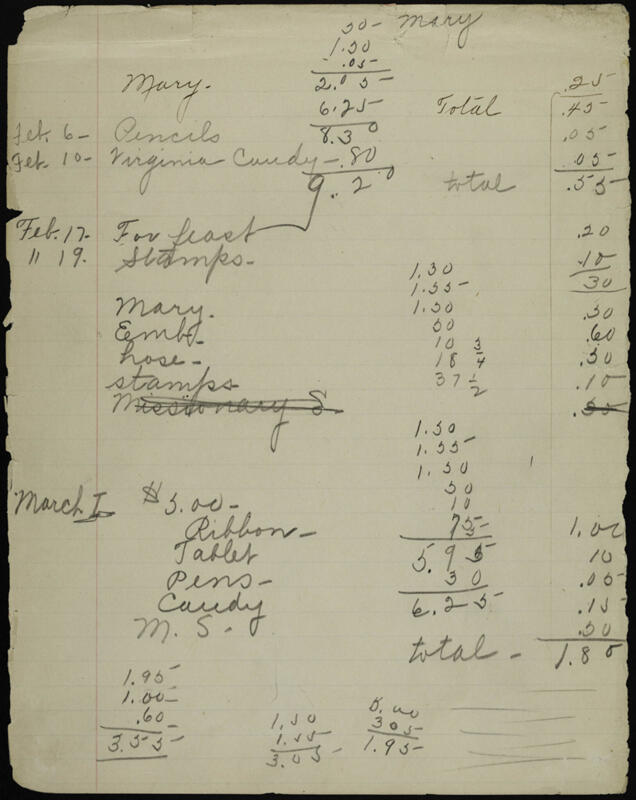 .50 Mary
1.50
.05
Mary. 2.05 .25
6.25 Total .45
Feb. 6- Pencils 8.30 .05
Feb. 10- Virginia Candy- .80 .05
9.20 total .55
Feb. 17- For feast .20
" 19. Stamps- .10
1.50 30
1.55
Mary. 1.50 .50
Emb. 50 .60
hose- 10 3/4 .50
stamps- 18 .10
37 1/2
Missionary S. .55
1.50
1.55
1.50
50
March I $5.00- 10
Ribbon- 75 1.00
Tablet 5.95 10
Pens- 30 .05
Candy 6.25 .15
M. S. - .50
total - 1.80
1.95
1.00
.60
3.55
1.50
1.55
3.05
5.00
305
1.95